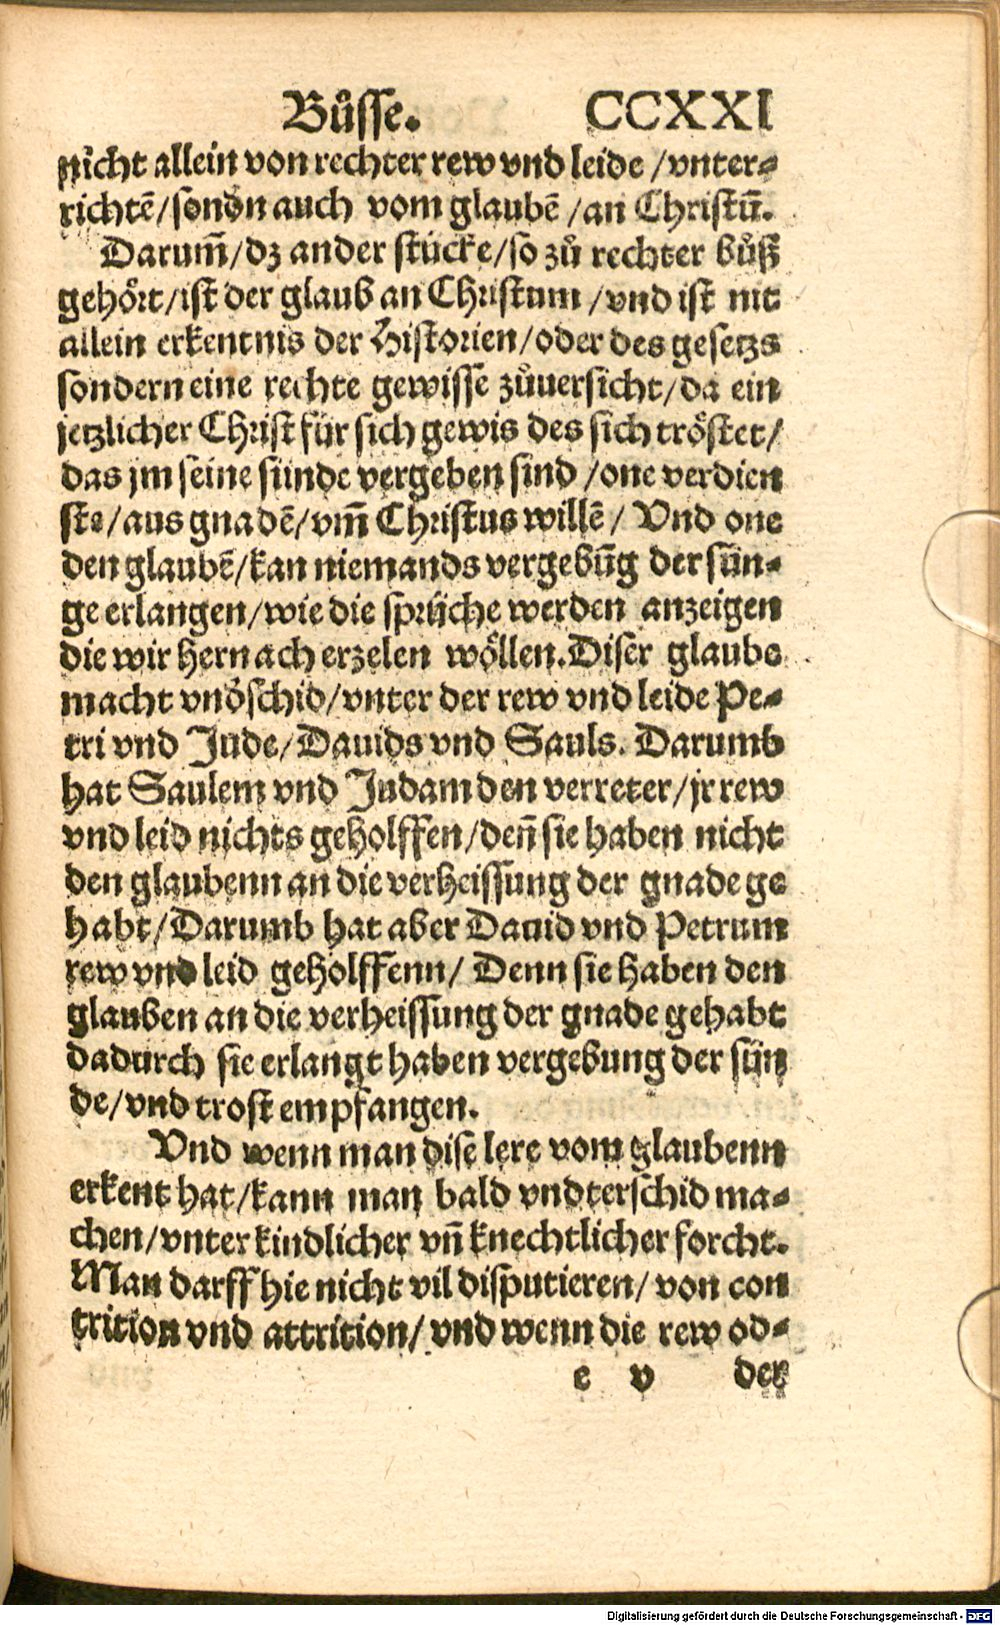 Bůſſe. CCXXI
nicht allein von rechter rew vnd leide /vnter⸗
richtē/ſondn̄ auch vom glaubē /an Chriſtū.
Darum̄/dz ander ſtücke/ſo zů rechter bůß
gehört/iſt der glaub an Chriſtum /vnd iſt nit
allein erkentnis der Hiſtorien/oder des geſetzs
ſondern eine rechte gewiſſe zůuerſicht/da ein
jetzlicher Chriſt für ſich gewis des ſich tröſtet/
das jm ſeine ſünde vergeben ſind /one verdien
ſte/aus gnadē/vm̄ Chriſtus willē/ Vnd one
den glaubē/kan niemands vergebūg der ſün⸗
ge erlangen/wie die ſprüche werden anzeigen
die wir hernach erzelen wöllen. Diſer glaube
macht vnd̄ſchid/vnter der rew vnd leide Pe⸗
tri vnd Jude/Dauids vnd Sauls. Darumb
hat Saulem vnd Judam den verreter/jr rew
vnd leid nichts geholffen/den̄ ſie haben nicht
den glaubenn an die verheiſſung der gnade ge
habt/Darumb hat aber Dauid vnd Petrum
rew vnd leid geholffenn/ Denn ſie haben den
glauben an die verheiſſung der gnade gehabt
dadurch ſie erlangt haben vergebung der ſün
de/vnd troſt empfangen.
Vnd wenn man diſe lere vom glaubenn
erkent hat/kann man bald vndterſchid ma⸗
chen/vnter kindlicher vn̄ knechtlicher forcht.
Man darff hie nicht vil diſputieren/ von con
trition vnd attrition/ vnd wenn die rew od⸗
e v der
Digitalisierung gefördert durch die Deutsche Forschungsgemeinschaft - DFG